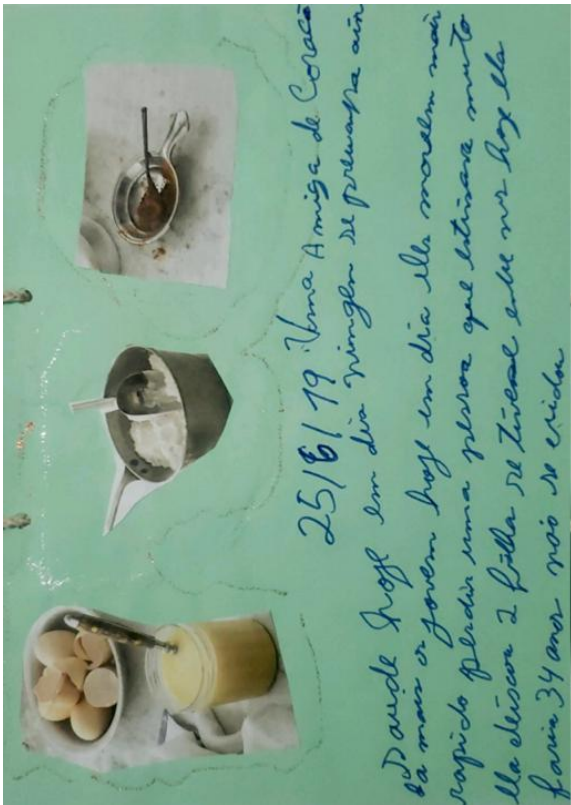 25/6/19 Uma Amiga de Coraçõ
Saude hoje em dia ningen se preucupa ain
da mais os jovem hoje em dia eles morrem mais
rapido perdir uma pessoa que estimava muito
ela deixou 2 filha se tivesse entre nos hoje ela
faria 34 anos não se cuidou